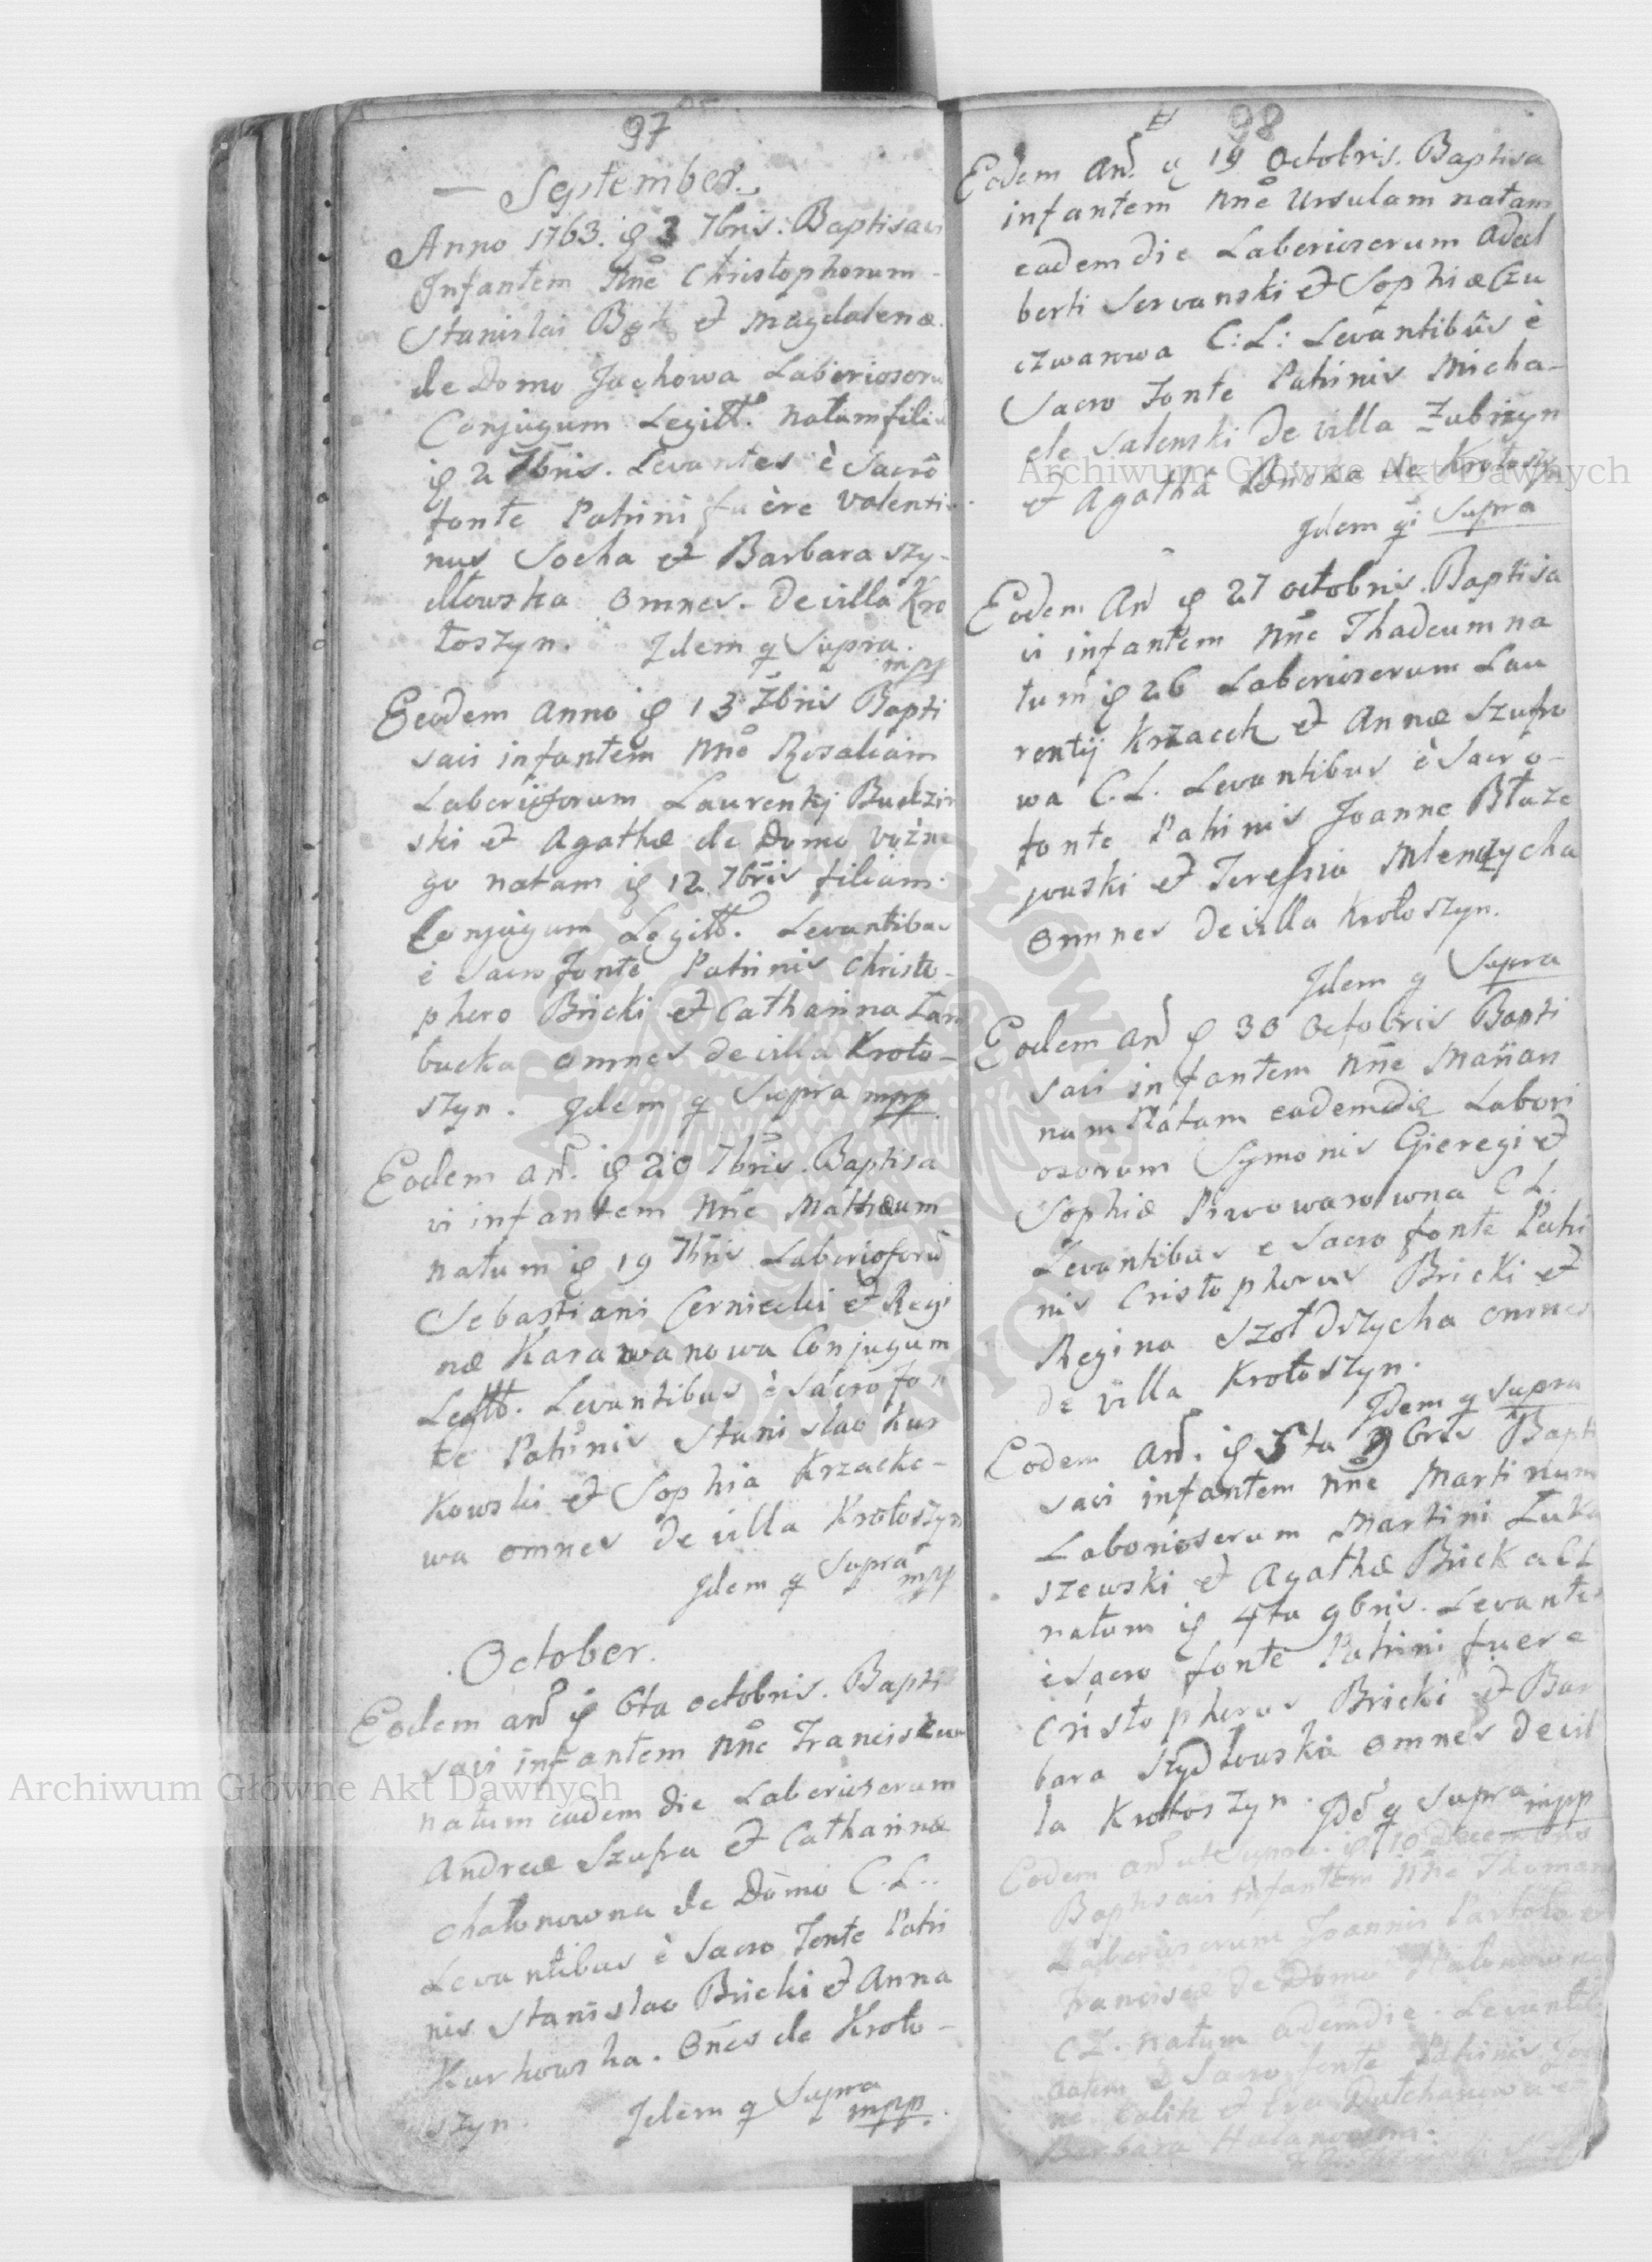 97
September.
Anno 1763. ię 3 7bris. Baptisavi
Infantem Nñe Christophorum
Stanislai et Magdalenæ
de Domo Jachowa Laborioseru
Conjugum Legitt. natum filiu
ię 2 7bris. Levantes è Sacrô
fonte Patrini fuêre Valenti
nus Socha et Barbara Szy-
dłowska omnes. De villa Kro
toszyn. Idem q Supra.
mpp
Eodem Anno ię 13 7bris Bapti
savi infantem Nñe Rosaliam
Laborijosorum Laurentij Budzin
ski et Agathæ de Domo Vożne
go natam ię 12 7bris filiam.
Conjugum Legitt. Levantibus
è Sacro fonte Patrinis Christo-
phero Bricki et Catharina Lam
bucka omnes de villa Kroto-
szyn. Idem q Supra mpp
Eodem an. ię 20 7bris. Baptisa
vi infantem Nñe Mathæum
natum ię 19 7bris Laboriosorũ
Sebastiani Czerniecki et Regi
næ Karawanowa Conjugum
Legitt. Levantibus è sacro fon
te Patrinis Stanislao Kur
kowski et Sophia Krzacko-
wa omnes de villa Krotoszyn
Idem q Supra
mpp
October.
Eodem and ię 6ta octobris. Bapti
savi infantem Nñe Franciscum
natum eadem die Laboriosorum
Andreæ Szufra et Catharinæ
Chatonowna de Domo C.L.
Levantibus è Sacro Fonte Patri
nis Stanislao Bricki et Anna
Kurkowska. Oñes de Kroto-
szyn. Idem q Supra
mpp.
98
Eodem And. q 19 Octobris. Baptisa
infantem Nñe Ursulam natam
eadem die Laboriosorum Adal
berti Servanski et Sophiæ Czu
czwarowa C:L: Levantibus è
Sacro Fonte Patrinis Micha-
ele Salenski De villa Zubrzyn
et Agatha de Krotoszy
Idem qi Supra
Eodem And ię 27 octobris. Baptisa
vi infantem Nñe Thadeum na
tum ię 26 Laboriosorum Lau
rentij Krzacek et Annæ Szufro
wa C.L. Levantibus è Sacro-
fonte Patrinis Joanne Błaze
jouski et Teressia Mlendycha
omnes de villa Krotoszyn.
Idem q Supra
Eodem And ię 30 Octobris Bapti
savi infantem Nñe Marian
nam Natam eadem die Labori
osorum Symonis Gieregi et
Sophiæ Piwowarowna C L.
Levantibus e Sacro fonte Patri
nis Cristophorus Bricki et
Regina Szołdrzycha omnes
de villa Krotoszyn.
Idem q Supra
Eodem And. ię 5ta 9bris Bapti
savi infantem Nñe Martinum
Laboriosorum Martini Łuka
szewski et Agathæ Bricka CL
natum ię 4ta 9bris. Levantes
è Sacro fonte Patrini fuere
Cristopherus Bricki et Bar
bara Szydłouska omnes de vil
la Krotoszyn. Idẽ q Supra mpp
Eodem And ut Supra. ię 10 Decembris
Baptisavi infantem Nñe Thomam
Laboriosorum Joannis et
Franciscæ de Domo
C L. natum eademdie. Levanti
è Sacro fonte Patrinis
et Eva
Barbara